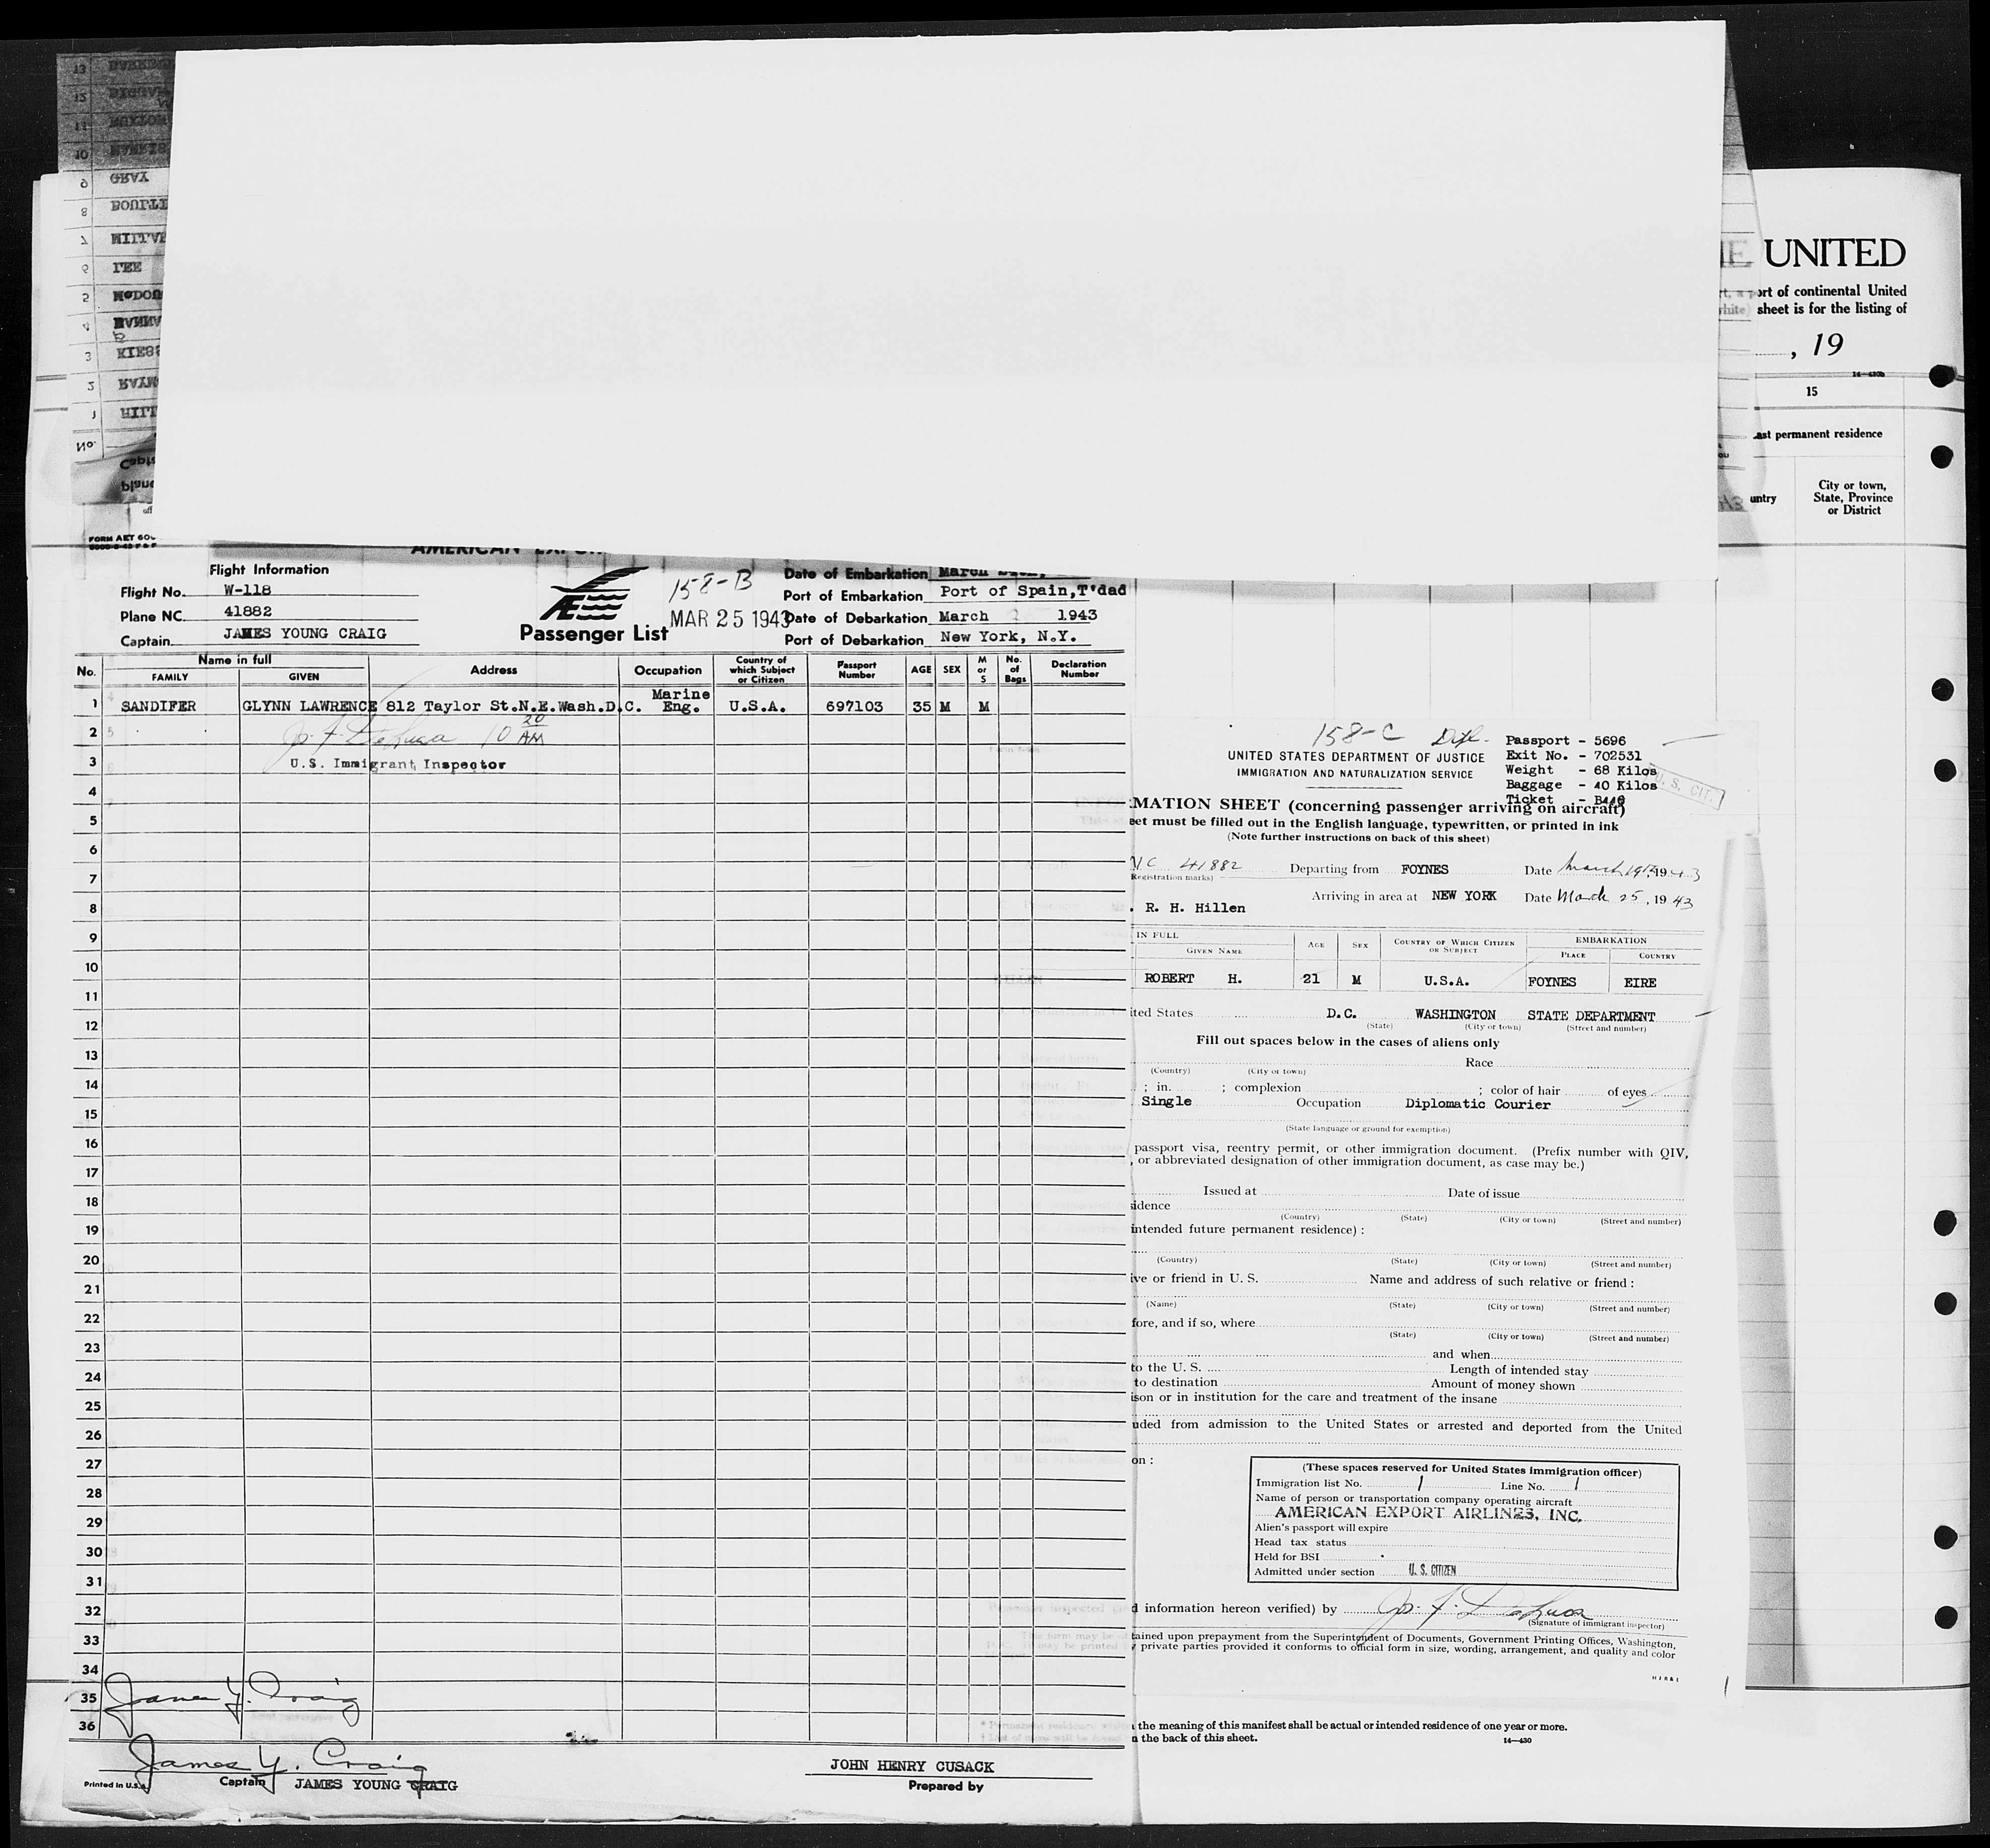 GRAY
LEE
No.
UNITED
ort of continental United
sheet is for the listing of
, 19
15
permanent residence
untry
City or town,
State, Province
or District
Flight Information
Flight No. W-118
Plane NC. 41882
Captain JAMES YOUNG CRAIG
Passenger List
158-B
MAR 25 1943
Date of Embarkation March
Port of Embarkation Port of Spain, T'dad
Date of Debarkation March 1943
Port of Debarkation New York, N.Y.
No. Name in full Address Occupation Country of which Subject or Citizen Passport Number AGE SEX M or S No. of Bags Declaration Number
FAMILY GIVEN
1 SANDIFER GLYNN LAWRENCE 812 Taylor St.N.E.Wash.D.C. Marine Eng. U.S.A. 697103 35 M M
2 10 20 AM
3 U.S. Immigrant Inspector
4
5
6
7
8
9
10
11
12
13
14
15
16
17
18
19
20
21
22
23
24
25
26
27
28
29
30
31
32
33
34
35 James Y. Craig
36
James Y. Craig
Printed in U.S.A. Captain JAMES YOUNG CRAIG
JOHN HENRY CUSACK
Prepared by
158-C Dipl.
Passport - 5696
Exit No. - 702531
Weight - 68 Kilos
Baggage - 40 Kilos
Ticket
U. S. CIT.
UNITED STATES DEPARTMENT OF JUSTICE
IMMIGRATION AND NATURALIZATION SERVICE
MATION SHEET (concerning passenger arriving on aircraft)
eet must be filled out in the English language, typewritten, or printed in ink
(Note further instructions on back of this sheet)
N.C 41882 Departing from FOYNES Date March 19th, 1943
Registration marks)
Arriving in area at NEW YORK Date March 25, 1943
. R. H. Hillen
IN FULL AGE SEX COUNTRY OF WHICH CITIZEN OR SUBJECT EMBARKATION
GIVEN NAME PLACE COUNTRY
ROBERT H. 21 M U.S.A. FOYNES EIRE
ited States D.C. WASHINGTON STATE DEPARTMENT
(State) (City or town) (Street and number)
Fill out spaces below in the cases of aliens only
Race
(Country) (City or town)
; in. ; complexion ; color of hair of eyes
Single Occupation Diplomatic Courier
(State language or ground for exemption)
passport visa, reentry permit, or other immigration document. (Prefix number with QIV,
, or abbreviated designation of other immigration document, as case may be.)
Issued at Date of issue
idence
(Country) (State) (City or town) (Street and number)
intended future permanent residence) :
(Country) (State) (City or town) (Street and number)
ive or friend in U. S. Name and address of such relative or friend :
(Name) (State) (City or town) (Street and number)
fore, and if so, where
(State) (City or town) (Street and number)
and when
to the U. S. Length of intended stay
to destination Amount of money shown
ison or in institution for the care and treatment of the insane
uded from admission to the United States or arrested and deported from the United
on :
(These spaces reserved for United States immigration officer)
Immigration list No. 1 Line No. 1
Name of person or transportation company operating aircraft
AMERICAN EXPORT AIRLINES, INC.
Alien's passport will expire
Head tax status
Held for BSI
Admitted under section U. S. CITIZEN
d information hereon verified) by
(Signature of immigrant inspector)
tained upon prepayment from the Superintendent of Documents, Government Printing Offices, Washington,
private parties provided it conforms to official form in size, wording, arrangement, and quality and color
the meaning of this manifest shall be actual or intended residence of one year or more.
n the back of this sheet.
14-430